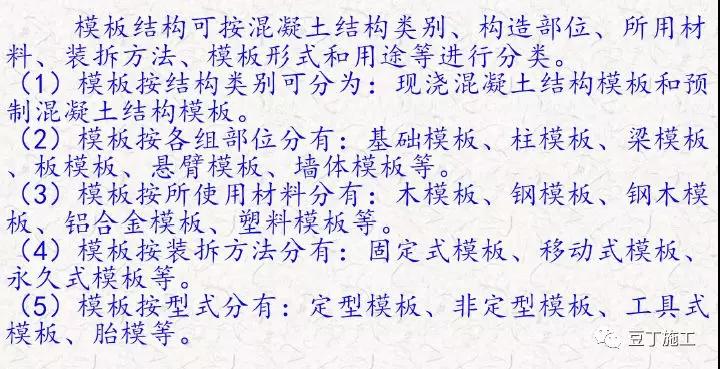 模板结构可按混凝土结构类别、构造部位、所用材
料、装拆方法、模板形式和用途等进行分类。
（1）模板按结构类别可分为：现浇混凝土结构模板和预
制混凝土结构模板。
（2）模板按各组部位分有：基础模板、柱模板、梁模板
、板模板、悬臂模板、墙体模板等。
（3）模板按所使用材料分有：木模板、钢模板、钢木模
板、铝合金模板、塑料模板等。
（4）模板按装拆方法分有：固定式模板、移动式模板、
永久式模板等。
（5）模板按型式分有：定型模板、非定型模板、工具式
模板、胎模等。
豆丁施工